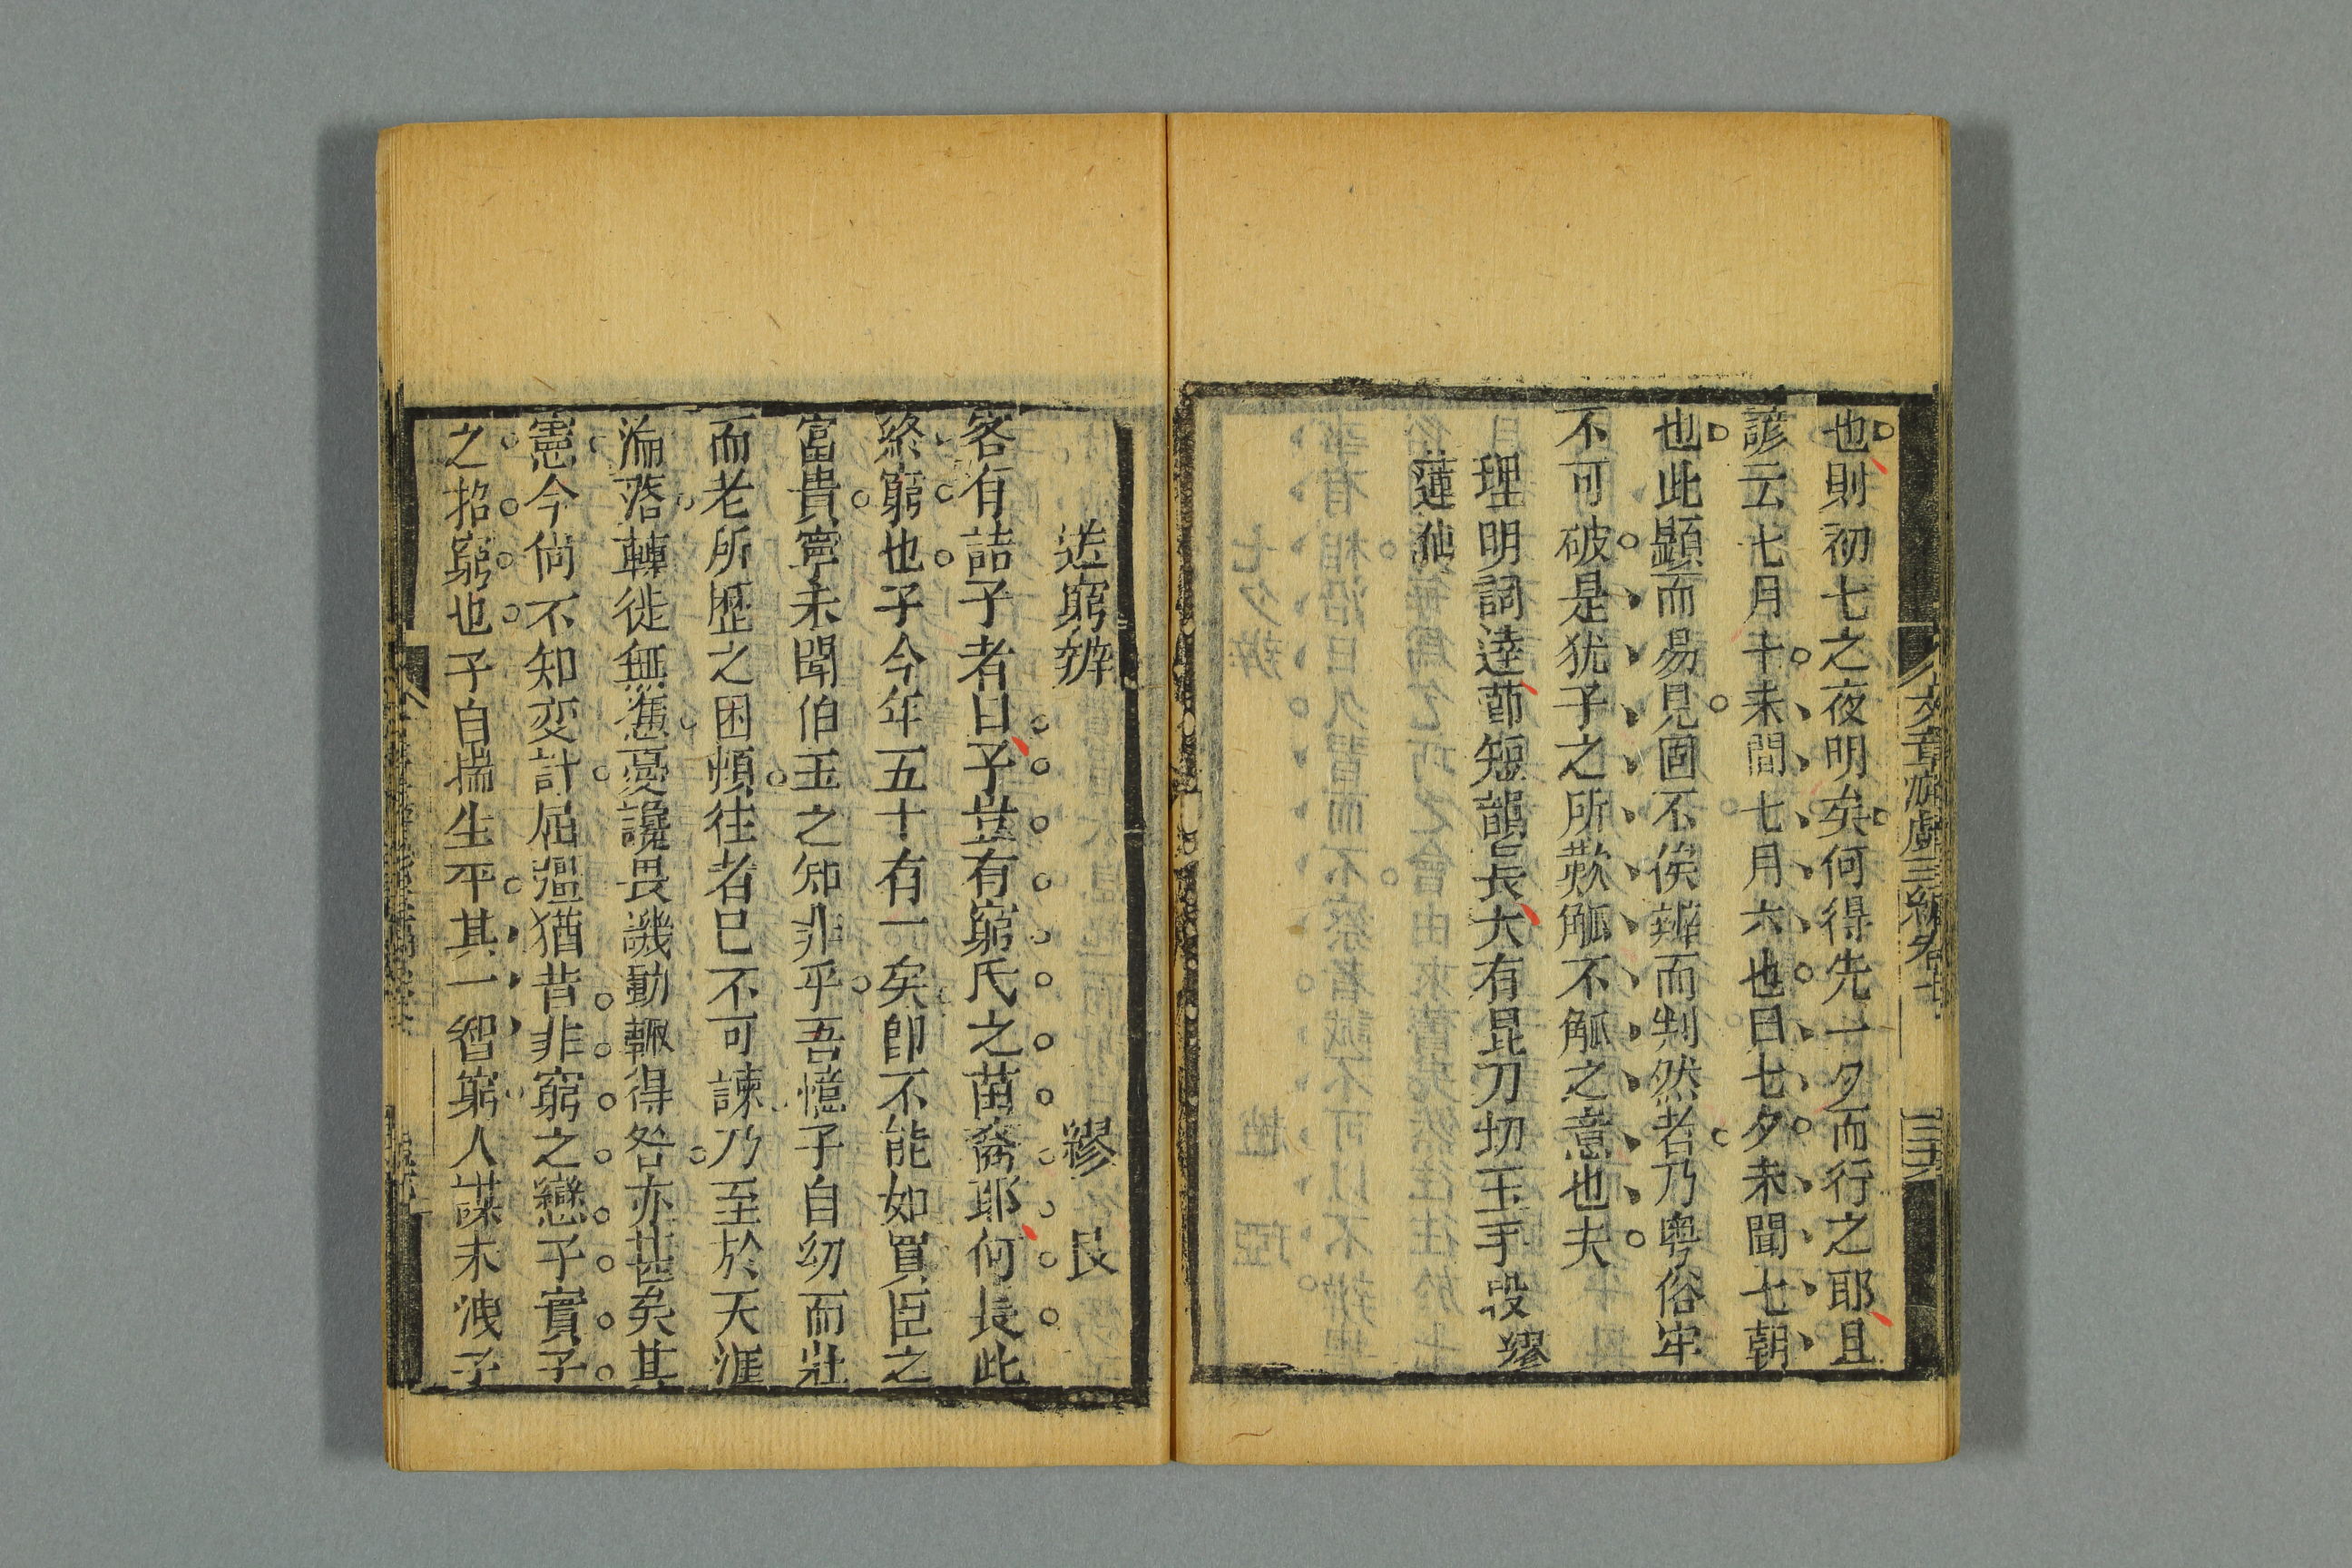 文章游戲三編卷七
三五
也則初七之夜明矣何得先一夕而行之耶且
諺云七月十未間七月六也曰七夕未聞七朝
也此顯而易見固不俟辨而判然者乃粤俗牢
不可破是犹子之所歎觚不觚之意也夫
理明詞達節短韻長大有昆刀切玉手段繆
蓮仙
送窮辨 繆艮
客有詰子者曰子豈有窮氏之苗裔耶何長此
終窮也子今年五十有一矣卽不能如買臣之
富貴寧未聞伯玉之知非乎吾憶子自幼而壯
而老所歷之困頓往者已不可諫乃至於天涯
淪落轉徙無憑憂讒畏譏動輒得咎亦甚矣其
憲今倘不知变計屈彊猶昔非窮之戀子實子
之招窮也子自揣生平其一智窮人謀未洩子